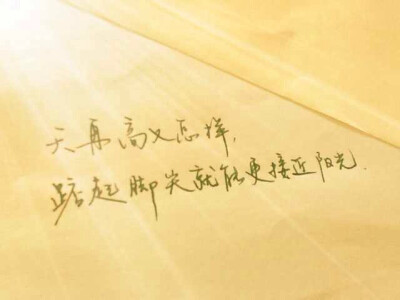 天再高又怎样，
踮起脚尖就能更接近阳光.